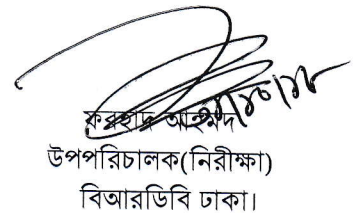 আহমদ
উপপরিচালক(নিরীক্ষা)
বিআরডিবি ঢাকা।